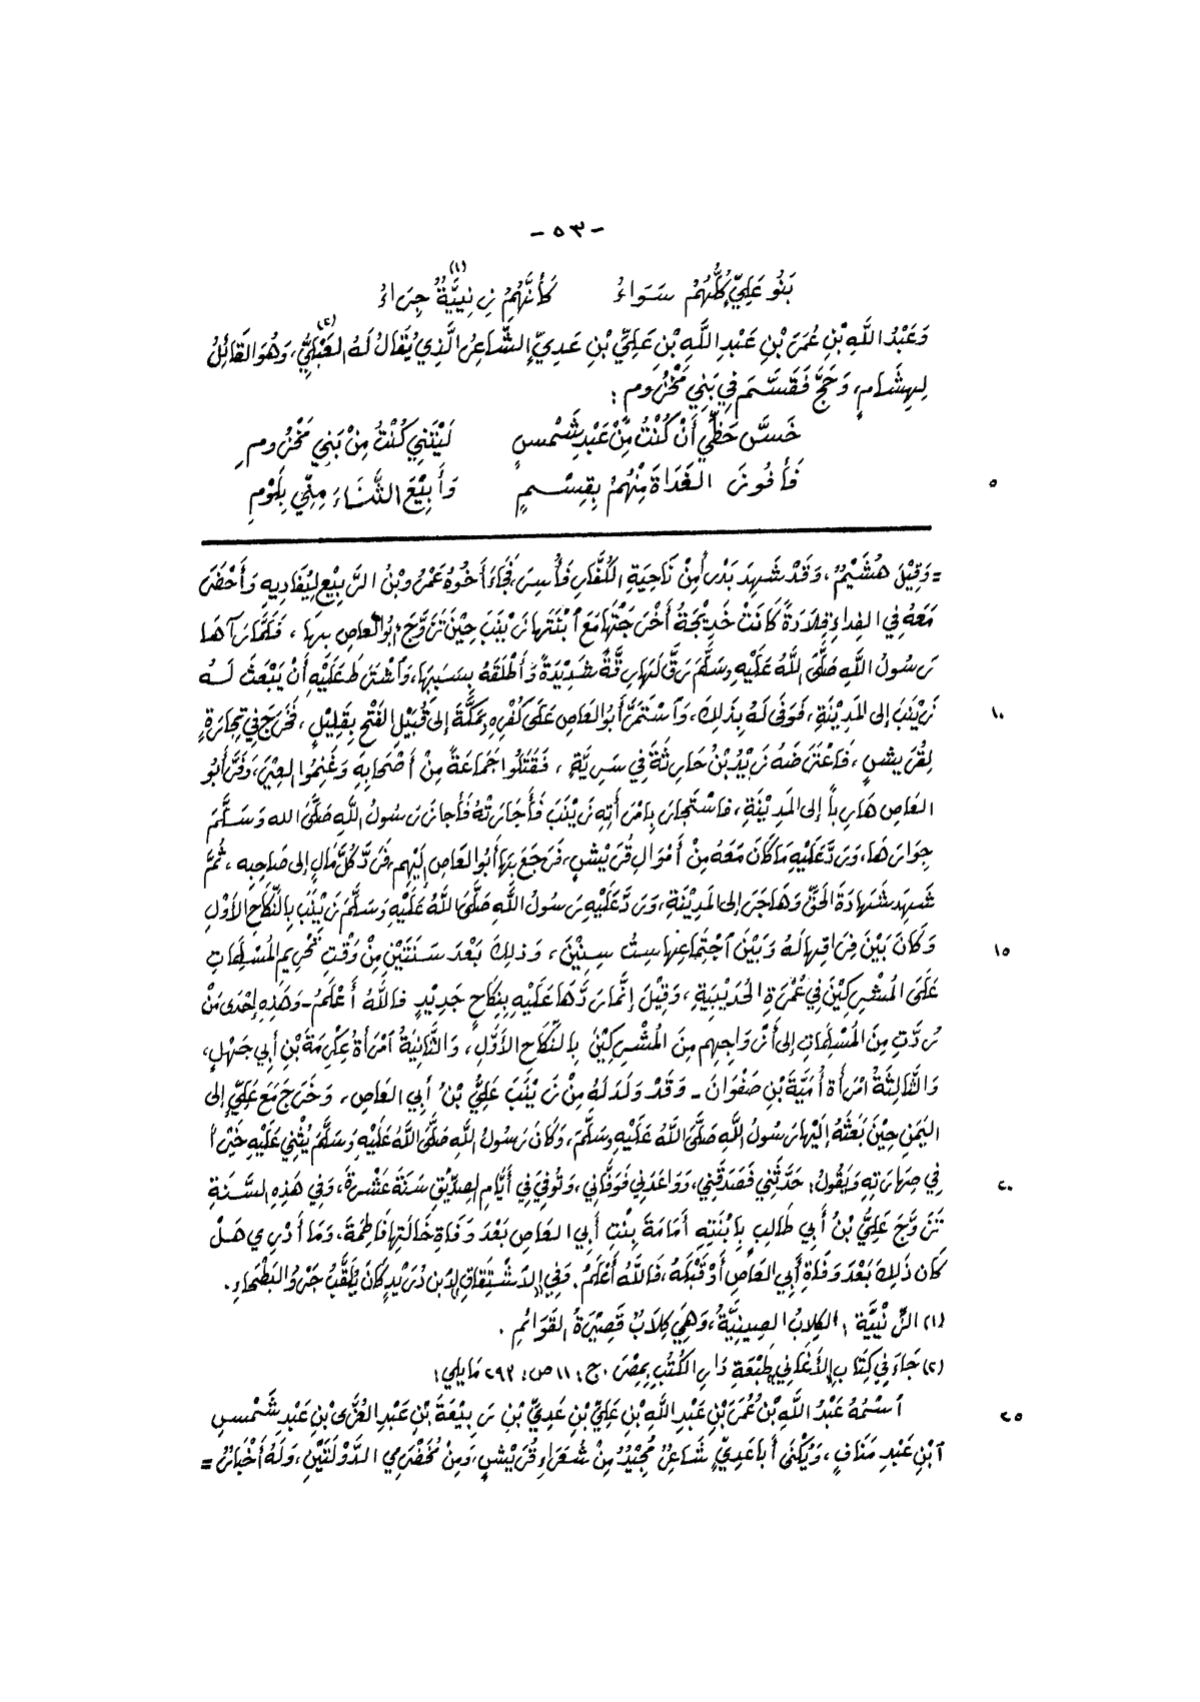 - ٥٣ -
بَنُو عَلِيٍّ كُلُّهُمْ سَوَاءُ كَأَنَّهُمْ زِينِيَّةٌ جِرَاءُ (١)
وَعَبْدُ اللَّهِ بْنِ عُمَرَ بْنِ عَبْدِ اللَّهِ بْنِ عَلِيِّ بْنِ عَدِيٍّ الشَّاعِرُ الَّذِي يُقَالُ لَهُ العَبَلِيُّ (٢)، وَهُوَ القَائِلُ
لِهِشَامٍ، وَحَجَّ فَقَسَّمَ فِي بَنِي مَخْزُومٍ :
خَسَّ حَظِّي أَنْ كُنْتُ مِنْ عَبْدِ شَمْسٍ لَيْتَنِي كُنْتُ مِنْ بَنِي مَخْزُومِ
فَأَفُوزَ الغَدَاةَ مِنْهُمْ بِقِسْمٍ وَأَبِيْعَ الثَّنَاءَ مِنِّي بِلَوْمِ
٥
= وَقِيْلَ هُشَيْمٌ، وَقَدْ شَهِدَ بَدْراً مِنْ نَاحِيَةِ الكُفَّارِ فَأُسِرَ، فَجَاءَ أَخُوهُ عَمْرُو بْنُ الرَّبِيْعِ لِيُفَادِيهِ وَأَحْضَرَ
مَعَهُ فِي الفِدَاءِ قِلَادَةً كَانَتْ خَدِيْجَةُ أَخْرَجَتْهَا مَعَ ابْنَتِهَا زَيْنَبَ حِيْنَ تَزَوَّجَ أبُو العَاصِ بِهَا، فَلَمَّا رَآهَا
رَسُولُ اللَّهِ صَلَّى اللَّهُ عَلَيْهِ وَسَلَّمَ رَقَّ لَهَا رِقَّةً شَدِيْدَةً وَأَطْلَقَهُ بِسَبَبِهَا، وَاشْتَرَطَ عَلَيْهِ أَنْ يَبْعَثَ لَهُ
زَيْنَبَ إِلَى المَدِيْنَةِ، فَوَفَى لَهُ بِذَلِكَ، وَاسْتَمَرَّ أَبُو العَاصِ عَلَى كُفْرِهِ بِمَكَّةَ إِلَى قُبَيْلِ الفَتْحِ بِقَلِيْلٍ، فَخَرَجَ فِي تِجَارَةٍ
١٠
لِقُرَيْشٍ، فَاعْتَرَضَهُ زَيْدُ بْنُ حَارِثَةَ فِي سَرِيَّةٍ، فَقَتَلُوا جَمَاعَةً مِنْ أَصْحَابِهِ وَغَنِمُوا العِيْرَ، وَفَرَّ أَبُو
العَاصِ هَارِباً إِلَى المَدِيْنَةِ، فَاسْتَجَارَ بِامْرَأَتِهِ زَيْنَبَ فَأَجَارَتْهُ فَأَجَازَ رَسُولُ اللَّهِ صَلَّى الله وَسَلَّمَ
جِوَارَهَا، وَرَدَّ عَلَيْهِ مَا كَانَ مَعَهُ مِنْ أَمْوَالِ قُرَيْشٍ، فَرَجَعَ بِهَا أَبُو العَاصِ إِلَيْهِم، فَرَدَّ كُلَّ مَالٍ إِلَى صَاحِبِهِ، ثُمَّ
شَهِدَ شَهَادَةَ الحَقِّ وَهَاجَرَ إِلَى المَدِيْنَةِ، وَرَدَّ عَلَيْهِ رَسُولُ اللَّهِ صَلَّى اللَّهُ عَلَيْهِ وَسَلَّمَ زَيْنَبَ بِالنِّكَاحِ الأَوَّلِ
وَكَانَ بَيْنَ فِرَاقِهَا لَهُ وَبَيْنَ اجْتِمَاعِهَا سِتُّ سِنِيْنَ، وَذَلِكَ بَعْدَ سَنَتَيْنِ مِنْ وَقْتِ تَحْرِيمِ المُسْلِمَاتِ
١٥
عَلَى المُشْرِكِيْنَ فِي عُمْرَةِ الحُدَيْبِيَةِ، وَقِيْلَ إِنَّمَا رَدَّهَا عَلَيْهِ بِنِكَاحٍ جَدِيْدٍ فَاللَّهُ أَعْلَمُ - وَهَذِهِ إِحْدَى مَنْ
رُدَّتْ مِنَ المُسْلِمَاتِ إِلَى أَزْوَاجِهِم مِنَ المُشْرِكِيْنَ بِالنِّكَاحِ الأَوَّلِ، وَالثَّانِيَةُ امْرَأَةُ عِكْرِمَةَ بْنِ أَبِي جَهْلٍ،
وَالثَّالِثَةُ امْرَأَةُ أُمَيَّةَ بْنِ صَفْوَانَ - وَقَدْ وَلَدَ لَهُ مِنْ زَيْنَبَ عَلِيُّ بْنُ أَبِي العَاصِ، وَخَرَجَ مَعَ عَلِيٍّ إِلَى
اليَمَنِ حِيْنَ بَعَثَهُ إِلَيْهَا رَسُولُ اللَّهِ صَلَّى اللَّهُ عَلَيْهِ وَسَلَّمَ، وَكَانَ رَسُولُ اللَّهِ صَلَّى اللَّهُ عَلَيْهِ وَسَلَّمَ يُثْنِي عَلَيْهِ خَيْراً
فِي صِهَارَتِهِ وَيَقُولُ: حَدَّثَنِي فَصَدَقَنِي، وَوَاعَدَنِي فَوَفَّانِي، وَتُوفِيَ فِي أَيَّامِ الصِّدِّيْقِ سَنَةَ عَشْرَةَ، وَفِي هَذِهِ السَّنَةِ
٢٠
تَزَوَّجَ عَلِيُّ بْنُ أَبِي طَالِبٍ بِابْنَتِهِ أُمَامَةَ بِنْتِ أَبِي العَاصِ بَعْدَ وَفَاةِ خَالَتِهَا فَاطِمَةَ، وَمَا أَدْرِي هَلْ
كَانَ ذَلِكَ بَعْدَ وَفَاةِ أَبِي العَاصِ أَوْ قَبْلَهُ، فَاللَّهُ أَعْلَمُ. وَفِي الاشْتِقَاقِ لِابْنِ دُرَيْدٍ كَانَ يُلَقَّبُ جَرْوَ البَطْحَاءِ.
(١) الزِّيْنِيَّةُ: الكِلَابُ الصِينِيَّةُ، وَهِيَ كِلَابٌ قَصِيْرَةُ القَوَائِمِ.
(٢) جَاءَ فِي كِتَابِ الأَغَانِي طَبْعَةِ دَارِ الكُتُبِ بِمِصْرَ. ج: ١١ ص: ٢٩٣ مَا يَلِي:
اسْمُهُ عَبْدُ اللَّهِ بْنُ عُمَرَ بْنِ عَبْدِ اللَّهِ بْنِ عَلِيِّ بْنِ عَدِيِّ بْنِ رَبِيْعَةَ بْنِ عَبْدِ العُزَّى بْنِ عَبْدِ شَمْسِ
٢٥
ابْنِ عَبْدِ مَنَافٍ، وَيُكْنَى أَبَا عَدِيٍّ شَاعِرٌ مُجِيْدٌ مِنْ شُعَرَاءِ قُرَيْشٍ، وَمِنْ مُخَضْرَمِي الدَّوْلَتَيْنِ، وَلَهُ أَخْبَارٌ =